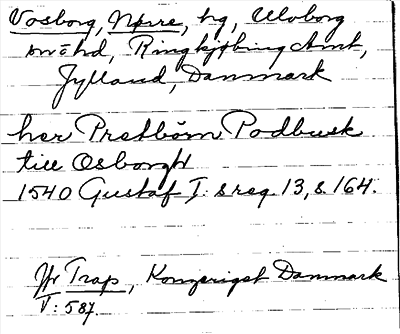 Vosborg, Nørre, hg, Ulvborg
sn o hd, Ringkjøbing Amt,
Jylland, Danmark
her Pretbörn Podbusk
till Osborgh
1540 Gustaf I:s reg. 13, s. 164.
Jfr Trap, Kongeriget Danmark
V: 587.